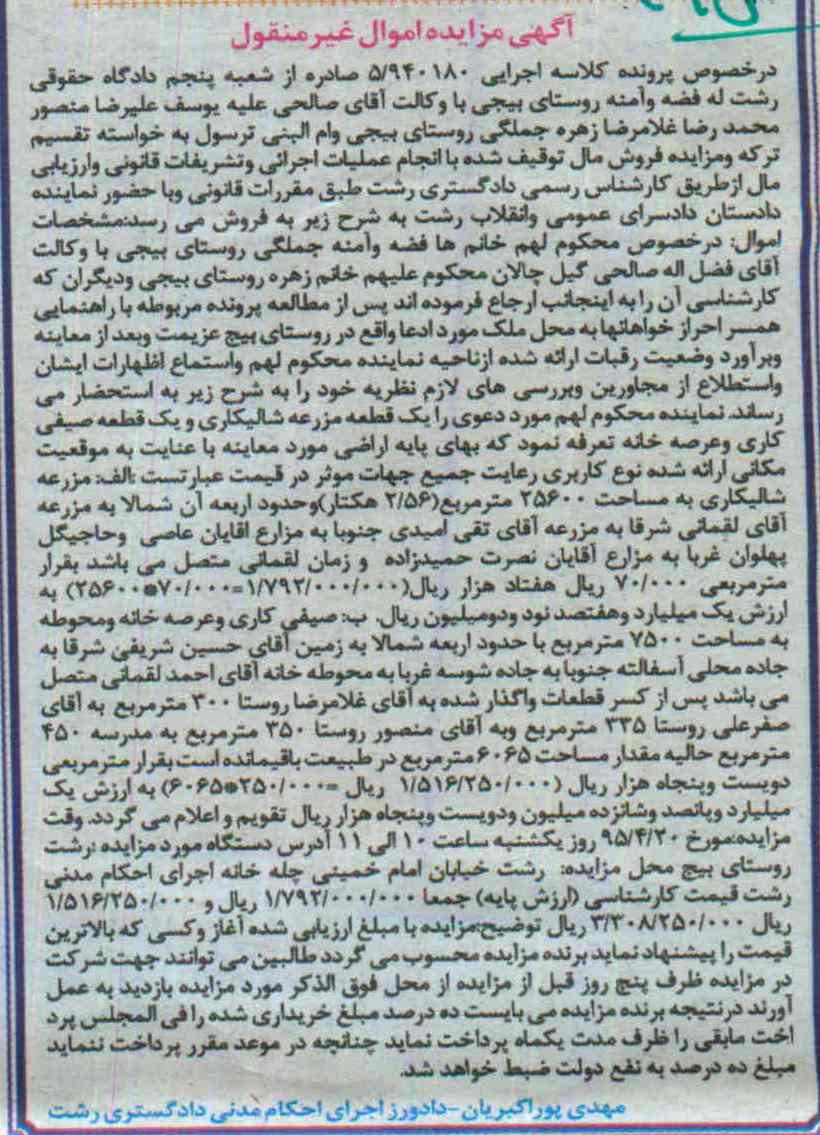 آگهی مزایده اموال غیر منقول
درخصوص پرونده کلاسه اجرایی ۵/۹۴۰۱۸۰ صادره از شعبه پنجم دادگاه حقوقی
رشت له فضه وآمنه روستای بیجی با وکالت آقای صالحی علیه یوسف علیرضا منصور
محمد رضا غلامرضا زهره جملگی روستای بیجی وام البنی ترسول به خواسته تقسیم
ترکه ومزایده فروش مال توقیف شده با انجام عملیات اجرائی وتشریفات قانونی وارزیابی
مال ازطریق کارشناس رسمی دادگستری رشت طبق مقررات قانونی وبا حضور نماینده
دادستان دادسرای عمومی وانقلاب رشت به شرح زیر به فروش می رسد:مشخصات
اموال: درخصوص محکوم لهم خانم ها فضه وآمنه جملگی روستای بیجی با وکالت
آقای فضل اله صالحی گیل چالان محکوم علیهم خانم زهره روستای بیجی ودیگران که
کارشناسی آن را به اینجانب ارجاع فرموده اند پس از مطالعه پرونده مربوطه با راهنمایی
همسر احراز خواهانها به محل ملک مورد ادعا واقع در روستای بیج عزیمت وبعد از معاینه
وبرآورد وضعیت رقبات ارائه شده ازناحیه نماینده محکوم لهم واستماع اظهارات ایشان
واستطلاع از مجاورین وبررسی های لازم نظریه خود را به شرح زیر به استحضار می
رساند. نماینده محکوم لهم مورد دعوی را یک قطعه مزرعه شالیکاری و یک قطعه صیفی
کاری وعرصه خانه تعرفه نمود که بهای پایه اراضی مورد معاینه با عنایت به موقعیت
مکانی ارائه شده نوع کاربری رعایت جمیع جهات موثر در قیمت عبارتست :الف: مزرعه
شالیکاری به مساحت ۲۵۶۰۰ مترمربع(۲/۵۶ هکتار)وحدود اربعه آن شمالا به مزرعه
آقای لقمانی شرقا به مزرعه آقای تقی امیدی جنوبا به مزارع اقایان عاصی وحاجیگل
پهلوان غربا به مزارع آقایان نصرت حمیدزاده و زمان لقمانی متصل می باشد بقرار
مترمربعی ۷۰/۰۰۰ ریال هفتاد هزار ریال(۱/۷۹۲/۰۰۰/۰۰۰=۷۰/۰۰۰*۲۵۶۰۰) به
ارزش یک میلیارد وهفتصد نود ودومیلیون ریال. ب: صیفی کاری وعرصه خانه ومحوطه
به مساحت ۷۵۰۰ مترمربع با حدود اربعه شمالا به زمین آقای حسین شریفی شرقا به
جاده محلی آسفالته جنوبا به جاده شوسه غربا به محوطه خانه آقای احمد لقمانی متصل
می باشد پس از کسر قطعات واگذار شده به آقای غلامرضا روستا ۳۰۰ مترمربع به آقای
صفرعلی روستا ۳۳۵ مترمربع وبه آقای منصور روستا ۳۵۰ مترمربع به مدرسه ۴۵۰
مترمربع حالیه مقدار مساحت ۶۰۶۵ مترمربع در طبیعت باقیمانده است بقرار مترمربعی
دویست وپنجاه هزار ریال (۱/۵۱۶/۲۵۰/۰۰۰ ریال =۲۵۰/۰۰۰*۶۰۶۵) به ارزش یک
میلیارد وپانصد وشانزده میلیون ودویست وپنجاه هزار ریال تقویم و اعلام می گردد. وقت
مزایده:مورخ ۹۵/۴/۲۰ روز یکشنبه ساعت ۱۰ الی ۱۱ آدرس دستگاه مورد مزایده :رشت
روستای بیج محل مزایده: رشت خیابان امام خمینی چله خانه اجرای احکام مدنی
رشت قیمت کارشناسی (ارزش پایه) جمعا ۱/۷۹۲/۰۰۰/۰۰۰ ریال و ۱/۵۱۶/۲۵۰/۰۰۰
ریال ۳/۳۰۸/۲۵۰/۰۰۰ ریال توضیح:مزایده با مبلغ ارزیابی شده آغاز وکسی که بالاترین
قیمت را پیشنهاد نماید برنده مزایده محسوب می گردد طالبین می توانند جهت شرکت
در مزایده ظرف پنج روز قبل از مزایده از محل فوق الذکر مورد مزایده بازدید به عمل
آورند درنتیجه برنده مزایده می بایست ده درصد مبلغ خریداری شده را فی المجلس پرد
اخت مابقی را ظرف مدت یکماه پرداخت نماید چنانچه در موعد مقرر پرداخت ننماید
مبلغ ده درصد به نفع دولت ضبط خواهد شد.
مهدی پوراکبریان -دادورز اجرای احکام مدنی دادگستری رشت